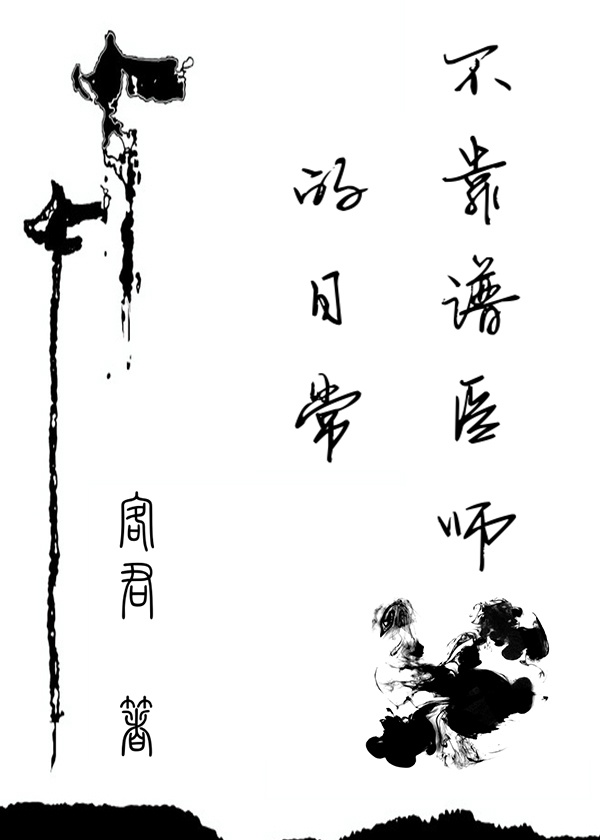 不靠谱医师
的日常
容君 著